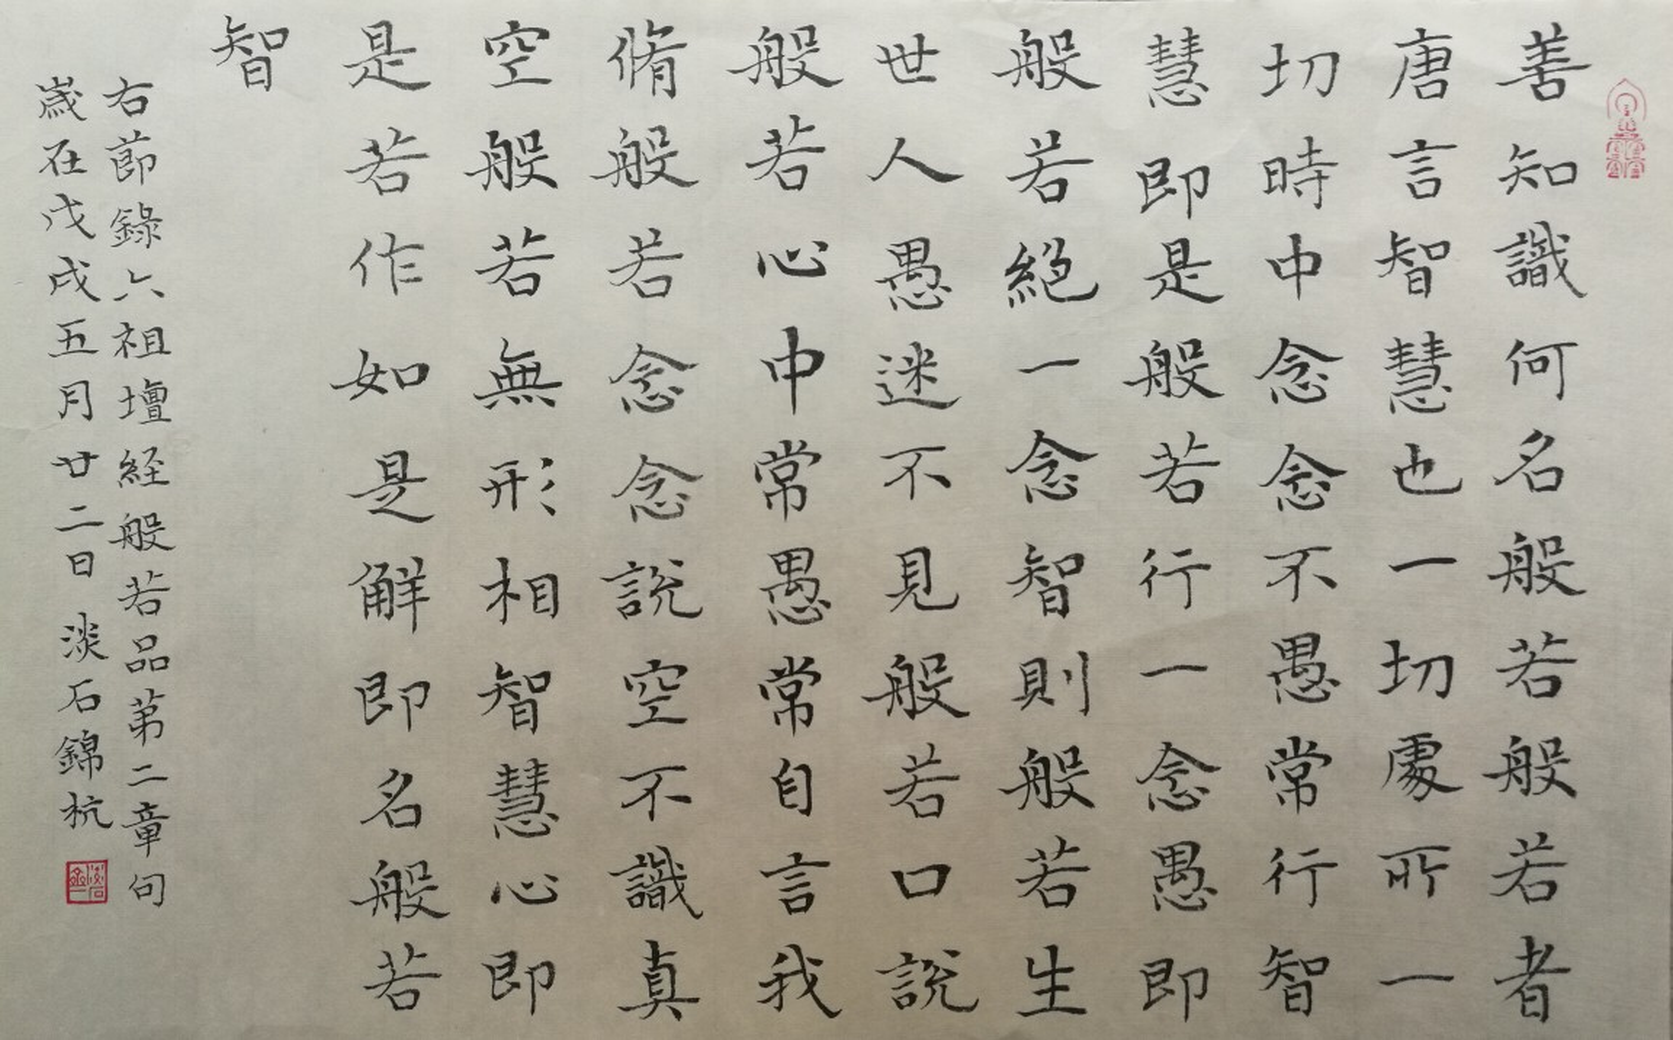 善知識何名般若般若者
唐言智慧也一切處所一
切時中念念不愚常行智
慧即是般若行一念愚即
般若絕一念智則般若生
世人愚迷不見般若口說
般若心中常愚常自言我
脩般若念念說空不識真
空般若無形相智慧心即
是若作如是解即名般若
智
右節錄六祖壇経般若品第二章句
歲在戊戌五月廿二日淡石錦杭